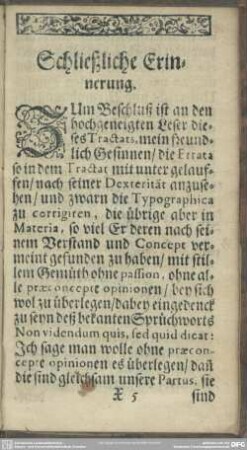 Schließliche Erin-
nerung.
ZUm Beschluß ist an den
hochgeneigten Leser die-
ses Tractats, mein freund-
lich Gesinnen/ die Errata
so in dem Tractat mit unter gelauf-
fen/ nach seiner Dexterität anzuse-
hen/ und zwarn die Typographica
zu corrigiren, die übrige aber in
Materia, so viel Er deren nach sei-
nem Verstand und Concept ver-
meint gefunden zu haben/ mit stil-
lem Gemüth ohne passion, ohne al-
le præconcepte opinionen/ bey sich
wol zu überlegen/ dabey eingedenck
zu seyn deß bekanten Sprüchworts
Non videndum quis, sed quid dicat:
Ich sage man wolle ohne præcon-
cepte opinionen es überlegen/ dañ
die sind gleichsam unsere Partus, sie
X 5 sind